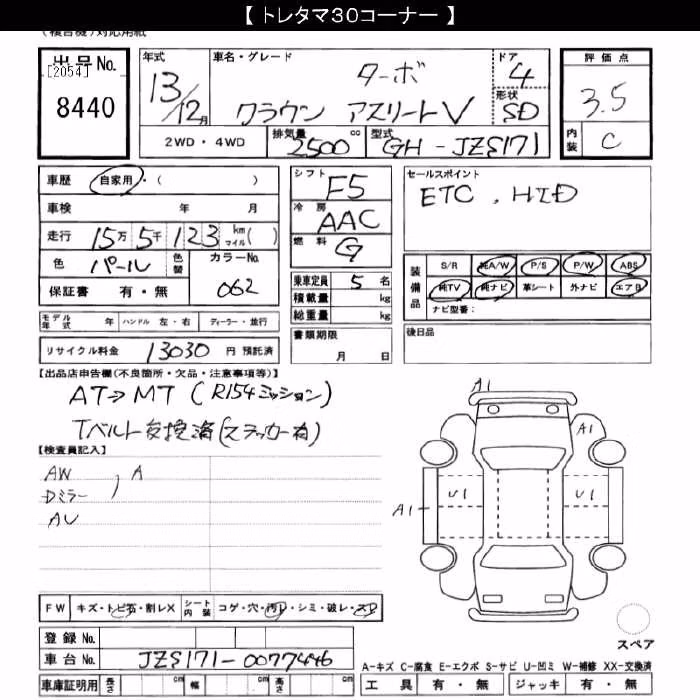 【 トレタマ30コーナー 】
(複合名)対応用紙
出品No.
[2054]
8440
年式
13/12月
車名・グレード
ターボ
クラウン アスリートV
ドア
4
形状
SD
評価点
3.5
内装
C
2WD・4WD
排気量
2500
cc
型式
GH-JZS171
車歴
自家用・( )
車検 年 月
走行 15万 5千 123 km マイル( )
色 パール 色替
カラーNo.
062
保証書 有・無
モデル年式 年 ハンドル 左・右 ディーラー・並行
リサイクル料金 13030 円 預託済
シフト
F5
冷房
AAC
燃料
G
乗車定員 5 名
積載量 kg
総重量 kg
書類期限
月 日
セールスポイント
ETC, HID
装備品
S/R 純A/W P/S P/W ABS
純TV 純ナビ 革シート 外ナビ エアB
ナビ型番:
後日品
【出品店申告欄(不良箇所・欠品・注意事項等)】
AT→MT (R154ミッション)
Tベルト交換済(ステッカー有)
【検査員記入】
AW
Dミラー ) A
AU
A1
A1
U1
U1
A1
FW キズ・トビ石・割レX シート内装 コゲ・穴・汚レ・シミ・破レ・スレ
登録No.
車台No. JZS171-0077446
車庫証明用 長さ cm 幅 cm 高さ cm
スペア
A-キズ C-腐食 E-エクボ S-サビ U-凹ミ W-補修 XX-交換済
工具 有・無 ジャッキ 有・無